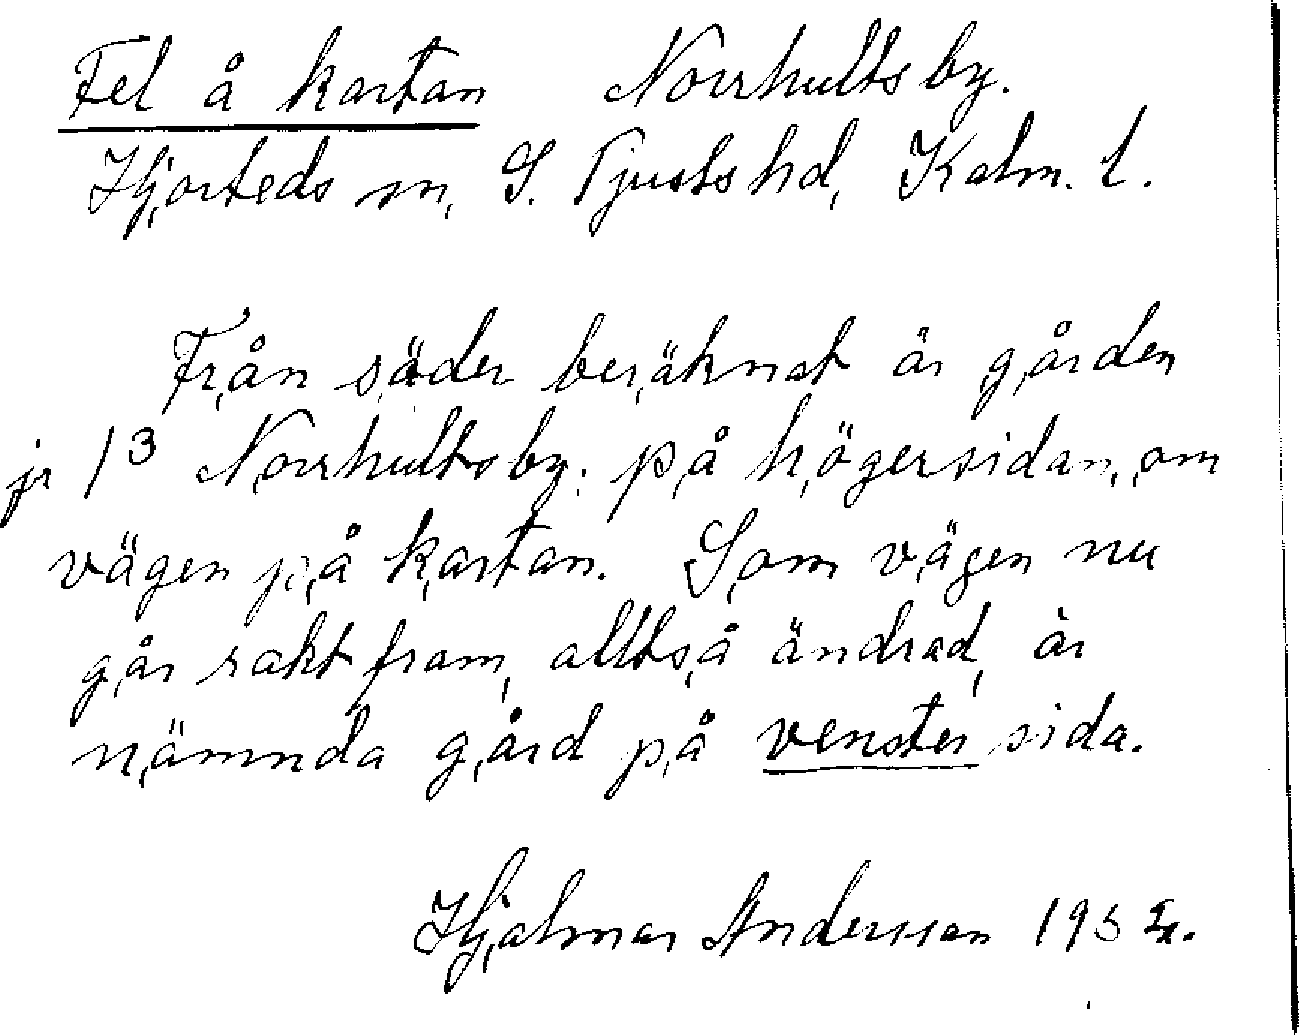 Fel å kartan Norrhults by.
Hjorteds sn, S. Tjusts hd, Kalm. l.
Från söder beräknat är gården
jr 1³ Norrhults by. på högersidan, om
vägen på kartan. Som vägen nu
går rakt fram, alltså ändrad, är
nämnda gård på venster sida.
Hjalmar Andersson